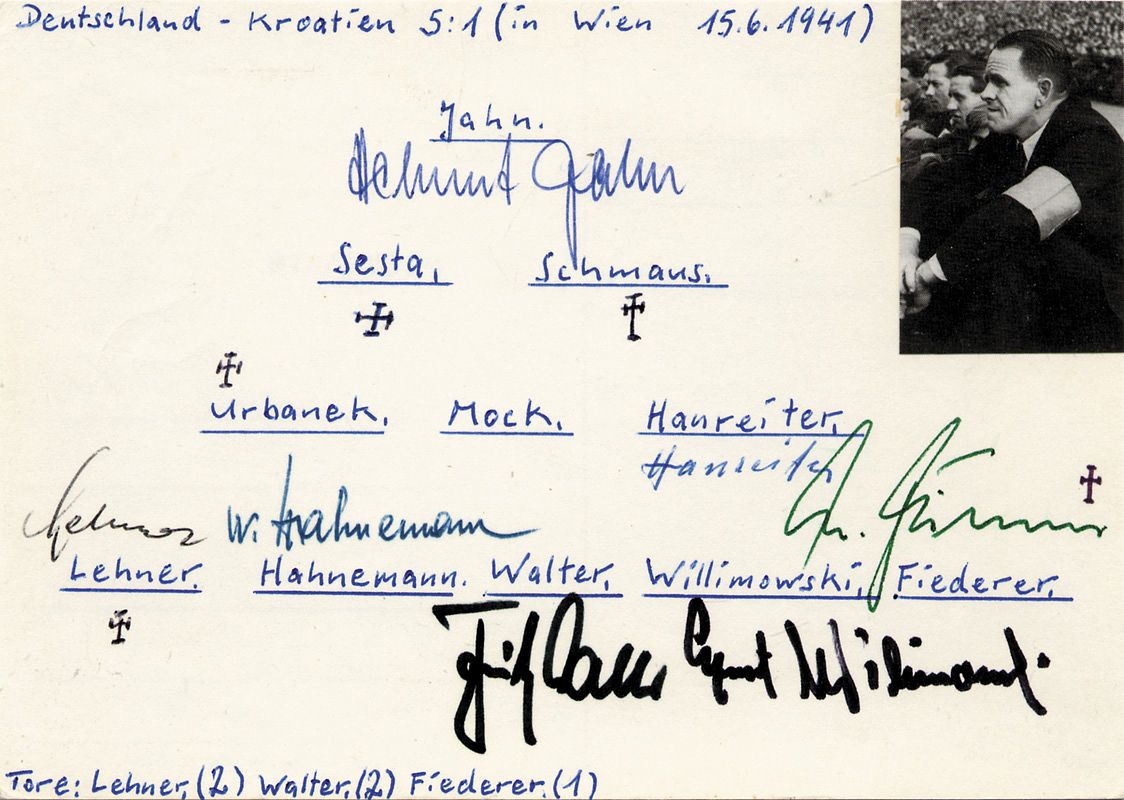 Deutschland - Kroatien 5:1 (in Wien 15.6.1941)
Jahn.
Helmut Jahn
Sesta, Schmaus.
Urbanek. Mock. Hanreiter,
Hanreiter
Lehner W. Hahnemann
Lehner. Hahnemann. Walter, Willimowski, Fiederer.
Fritz Walter Ernst Willimowski
Tore: Lehner, (2) Walter, (2) Fiederer. (1)